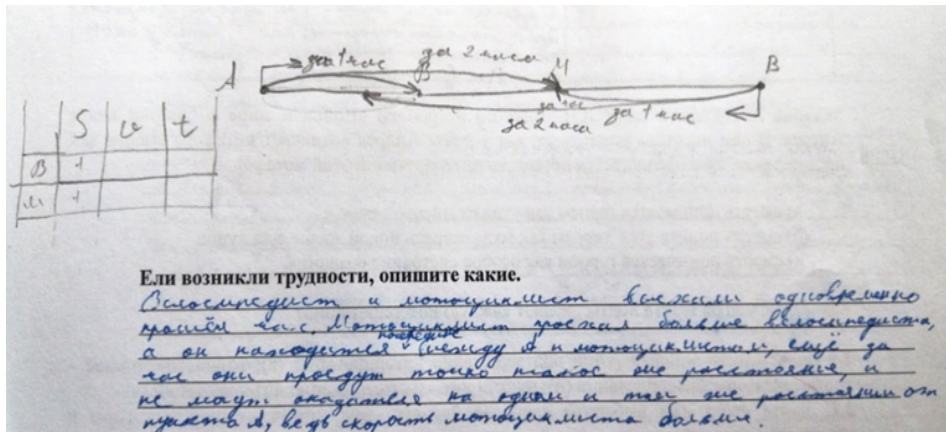 за 1 час за 2 часа
А В М В
за 1 час
за 2 часа
S v t
В +
м +
Ели возникли трудности, опишите какие.
Велосипедист и мотоциклист выехали одновременно
прошёл час. Мотоциклист проехал больше велосипедиста,
посредине
а он находится между А и мотоциклистом, ещё за
час они проедут точно такое же расстояние, и
не могут оказаться на одном и том же расстоянии от
пункта А, ведь скорость мотоциклиста больше.